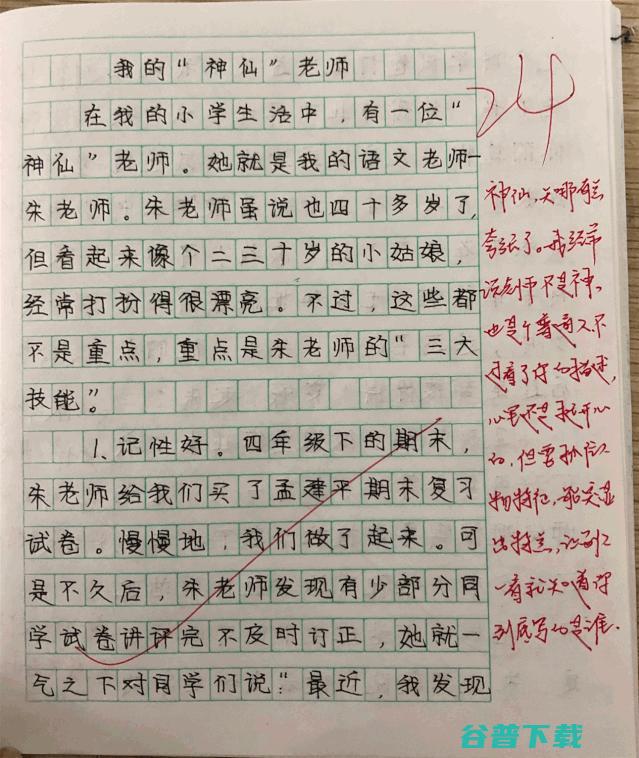 我的“神仙”老师
在我的小学生活中，有一位“
神仙”老师。她就是我的语文老师—
朱老师。朱老师虽说也四十多岁了，
但看起来像个二三十岁的小姑娘，
经常打扮得很漂亮。不过，这些都
不是重点，重点是朱老师的“三大
技能”。
1、记性好。四年级下的期末，
朱老师给我们买了孟建平期末复习
试卷。慢慢地，我们做了起来。可
是不久后，朱老师发现有少部分同
学试卷讲评完不及时订正，她就一
气之下对同学们说：“最近，我发现
24
神仙，
夸张了。我经常
说老师不是神，
也是个普通人。不
过看了你的描述，
心里还是挺开心
的，但要抓住人
物特征，能突出
出特点，让别人
一看就知道你
到底写的是谁.
谷普下载